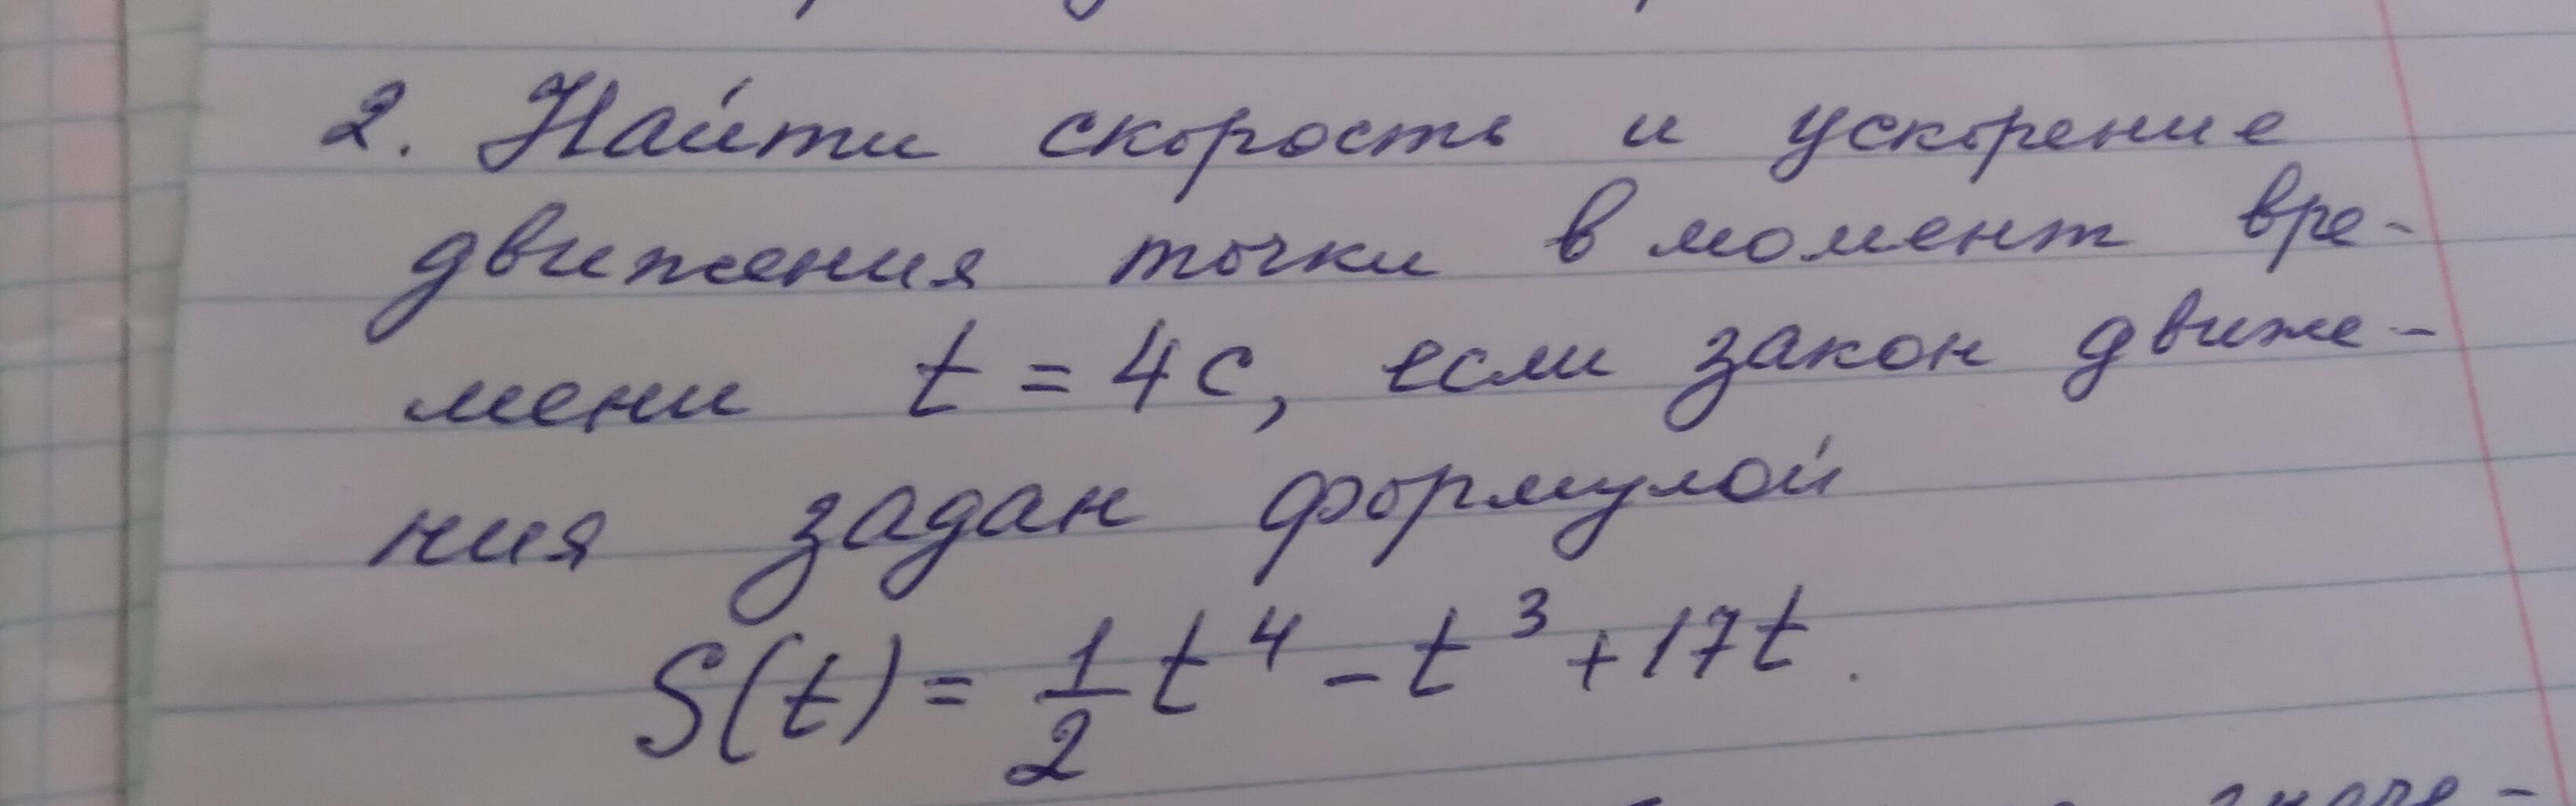 2. Найти скорость и ускорение
движения точки в момент вре-
мени t = 4с, если закон движе-
ния задан формулой
S(t) = 1/2 t⁴ - t³ + 17t.